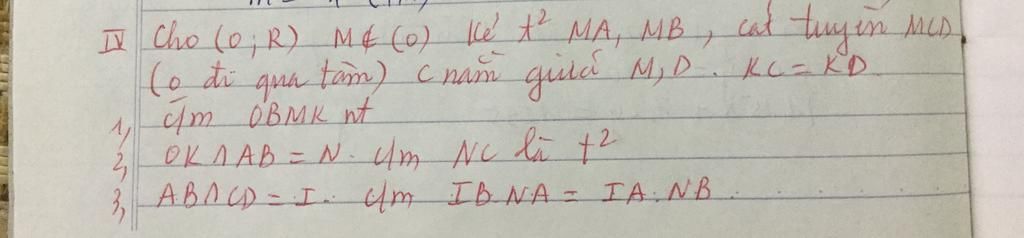 IV Cho (O; R) M ∉ (O) Kẻ t² MA, MB, cát tuyến MCD
(o đi qua tâm) C nằm giữa M, D. KC = KD
1, C/m OBMK nt
2, OK ∩ AB = N. C/m NC là t²
3, AB ∩ CD = I. C/m IB.NA = IA.NB.